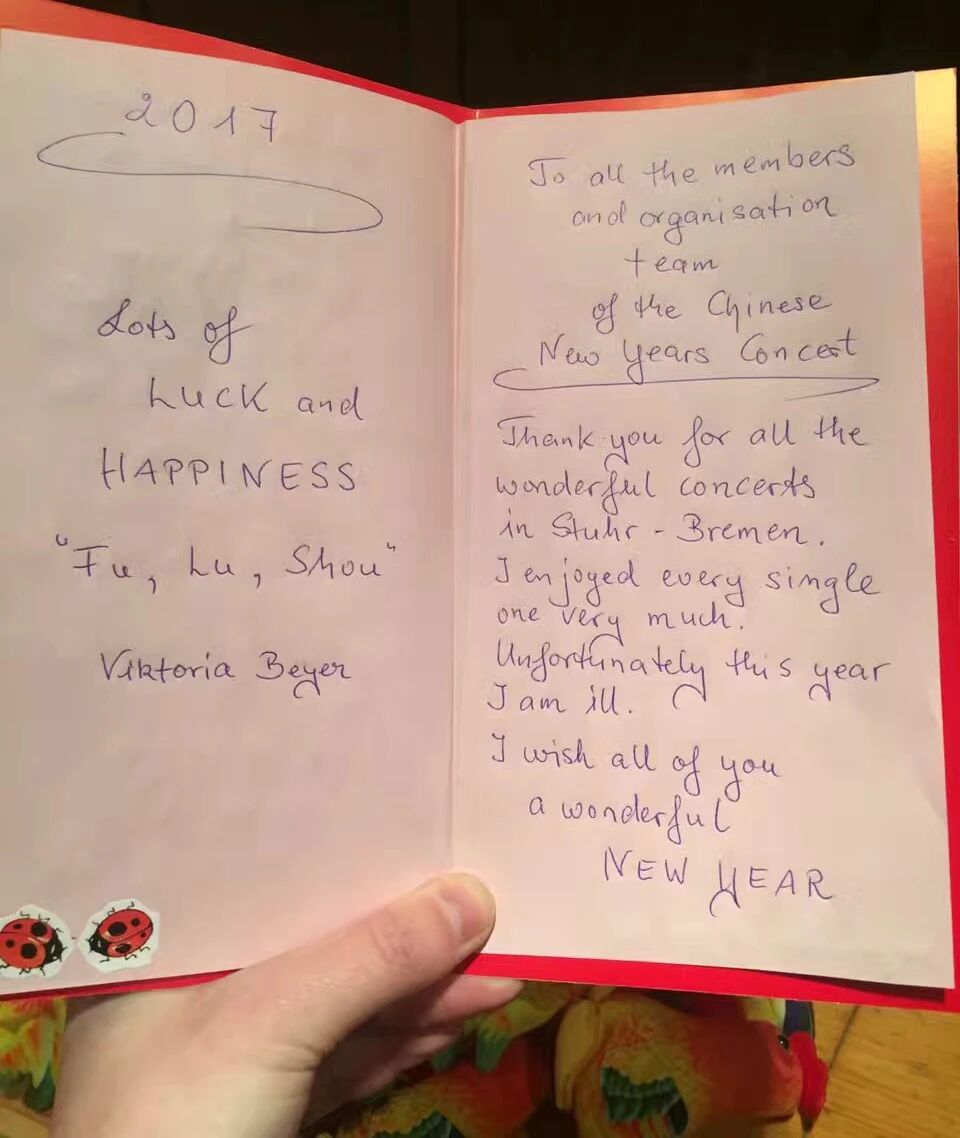 2017
Lots of
LUCK and
HAPPINESS
"Fu, Lu, Shou"
Viktoria Beyer
To all the members
and organisation
team
of the Chinese
New Years Concert
Thank you for all the
wonderful concerts
in Stuhr - Bremen.
I enjoyed every single
one very much.
Unfortunately this year
I am ill.
I wish all of you
a wonderful
NEW YEAR